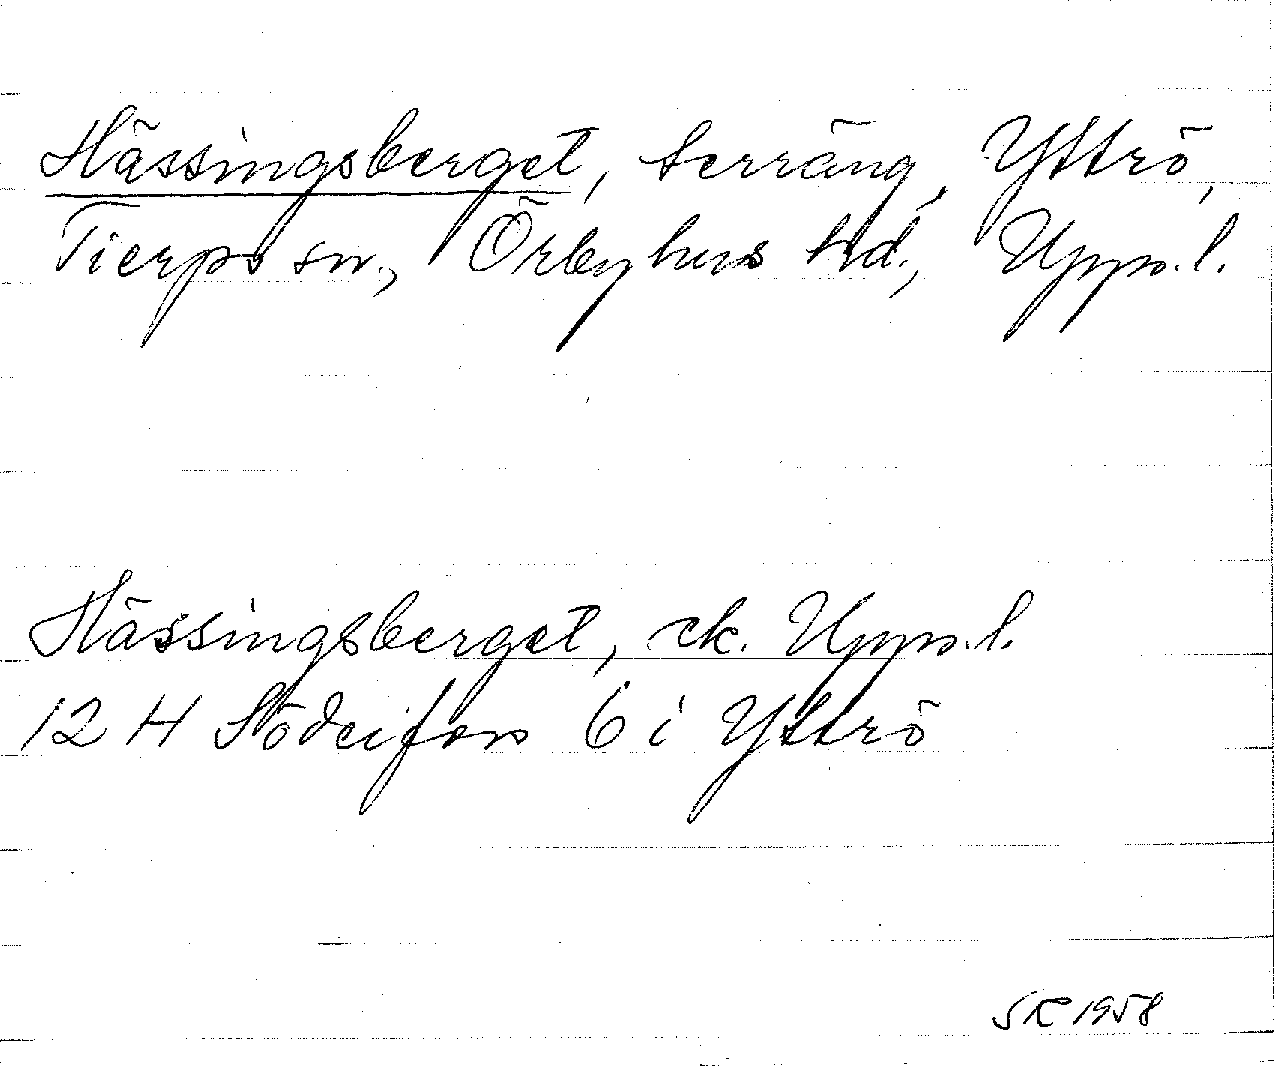 Hässingsberget, terräng, Yttrö,
Tierps sn., Örbyhus hd., Uppl.
Hässingsberget, ek. Uppl.
12 H Söderfors 6 i Yttrö
SR 1958